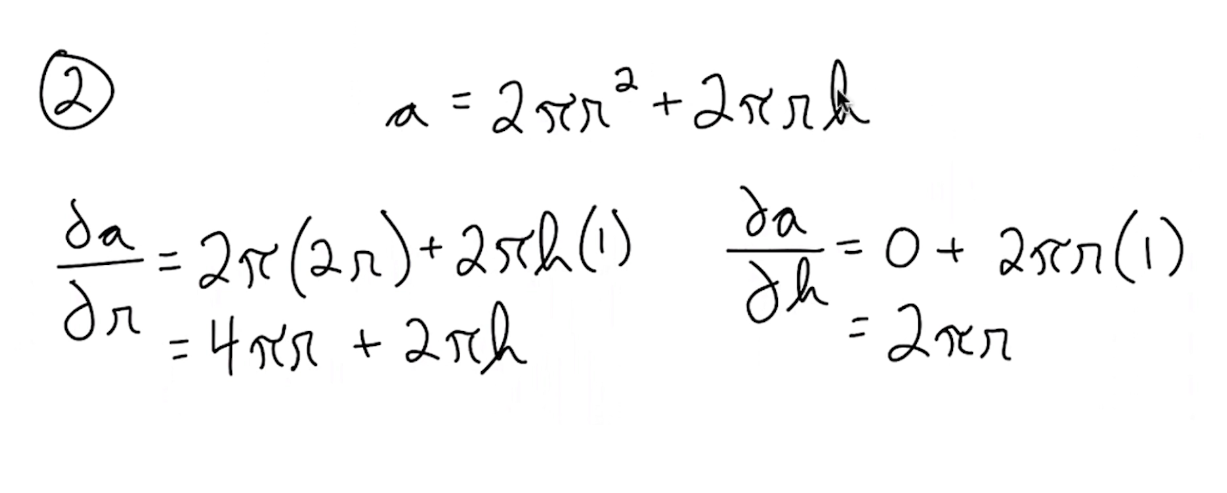 ② a = 2πr² + 2πrh
∂a/∂r = 2π(2r) + 2πh(1)
= 4πr + 2πh
∂a/∂h = 0 + 2πr(1)
= 2πr